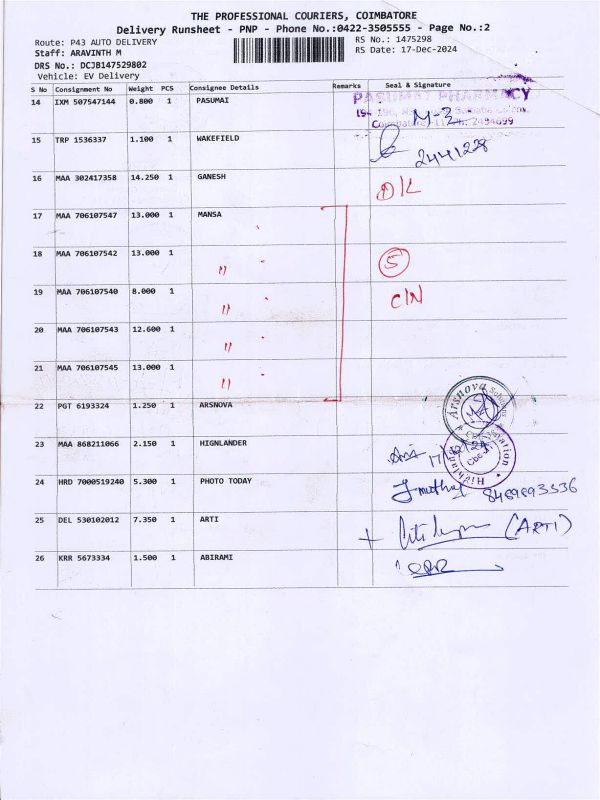 THE PROFESSIONAL COURIERS, COIMBATORE
Delivery Runsheet - PNP - Phone No.:0422-3505555 - Page No.:2
Route: P43 AUTO DELIVERY RS No.: 1475298
Staff: ARAVINTH M RS Date: 17-Dec-2024
DRS No.: DCJB147529802
Vehicle: EV Delivery
S No Consignment No Weight PCS Consignee Details Remarks Seal & Signature
14 IXM 507547144 0.800 1 PASUMAI
PASUMAI PHARMACY
M-3
15 TRP 1536337 1.100 1 WAKEFIELD
2441228
16 MAA 302417358 14.250 1 GANESH D/L
17 MAA 706107547 13.000 1 MANSA
18 MAA 706107542 13.000 1 " 5
19 MAA 706107540 8.000 1 " C/N
20 MAA 706107543 12.600 1 "
21 MAA 706107545 13.000 1 "
22 PGT 6193324 1.250 1 ARSNOVA
Arsnova
23 MAA 868211066 2.150 1 HIGNLANDER
24 HRD 7000519240 5.300 1 PHOTO TODAY
25 DEL 530102012 7.350 1 ARTI (ARTI)
26 KRR 5673334 1.500 1 ABIRAMI